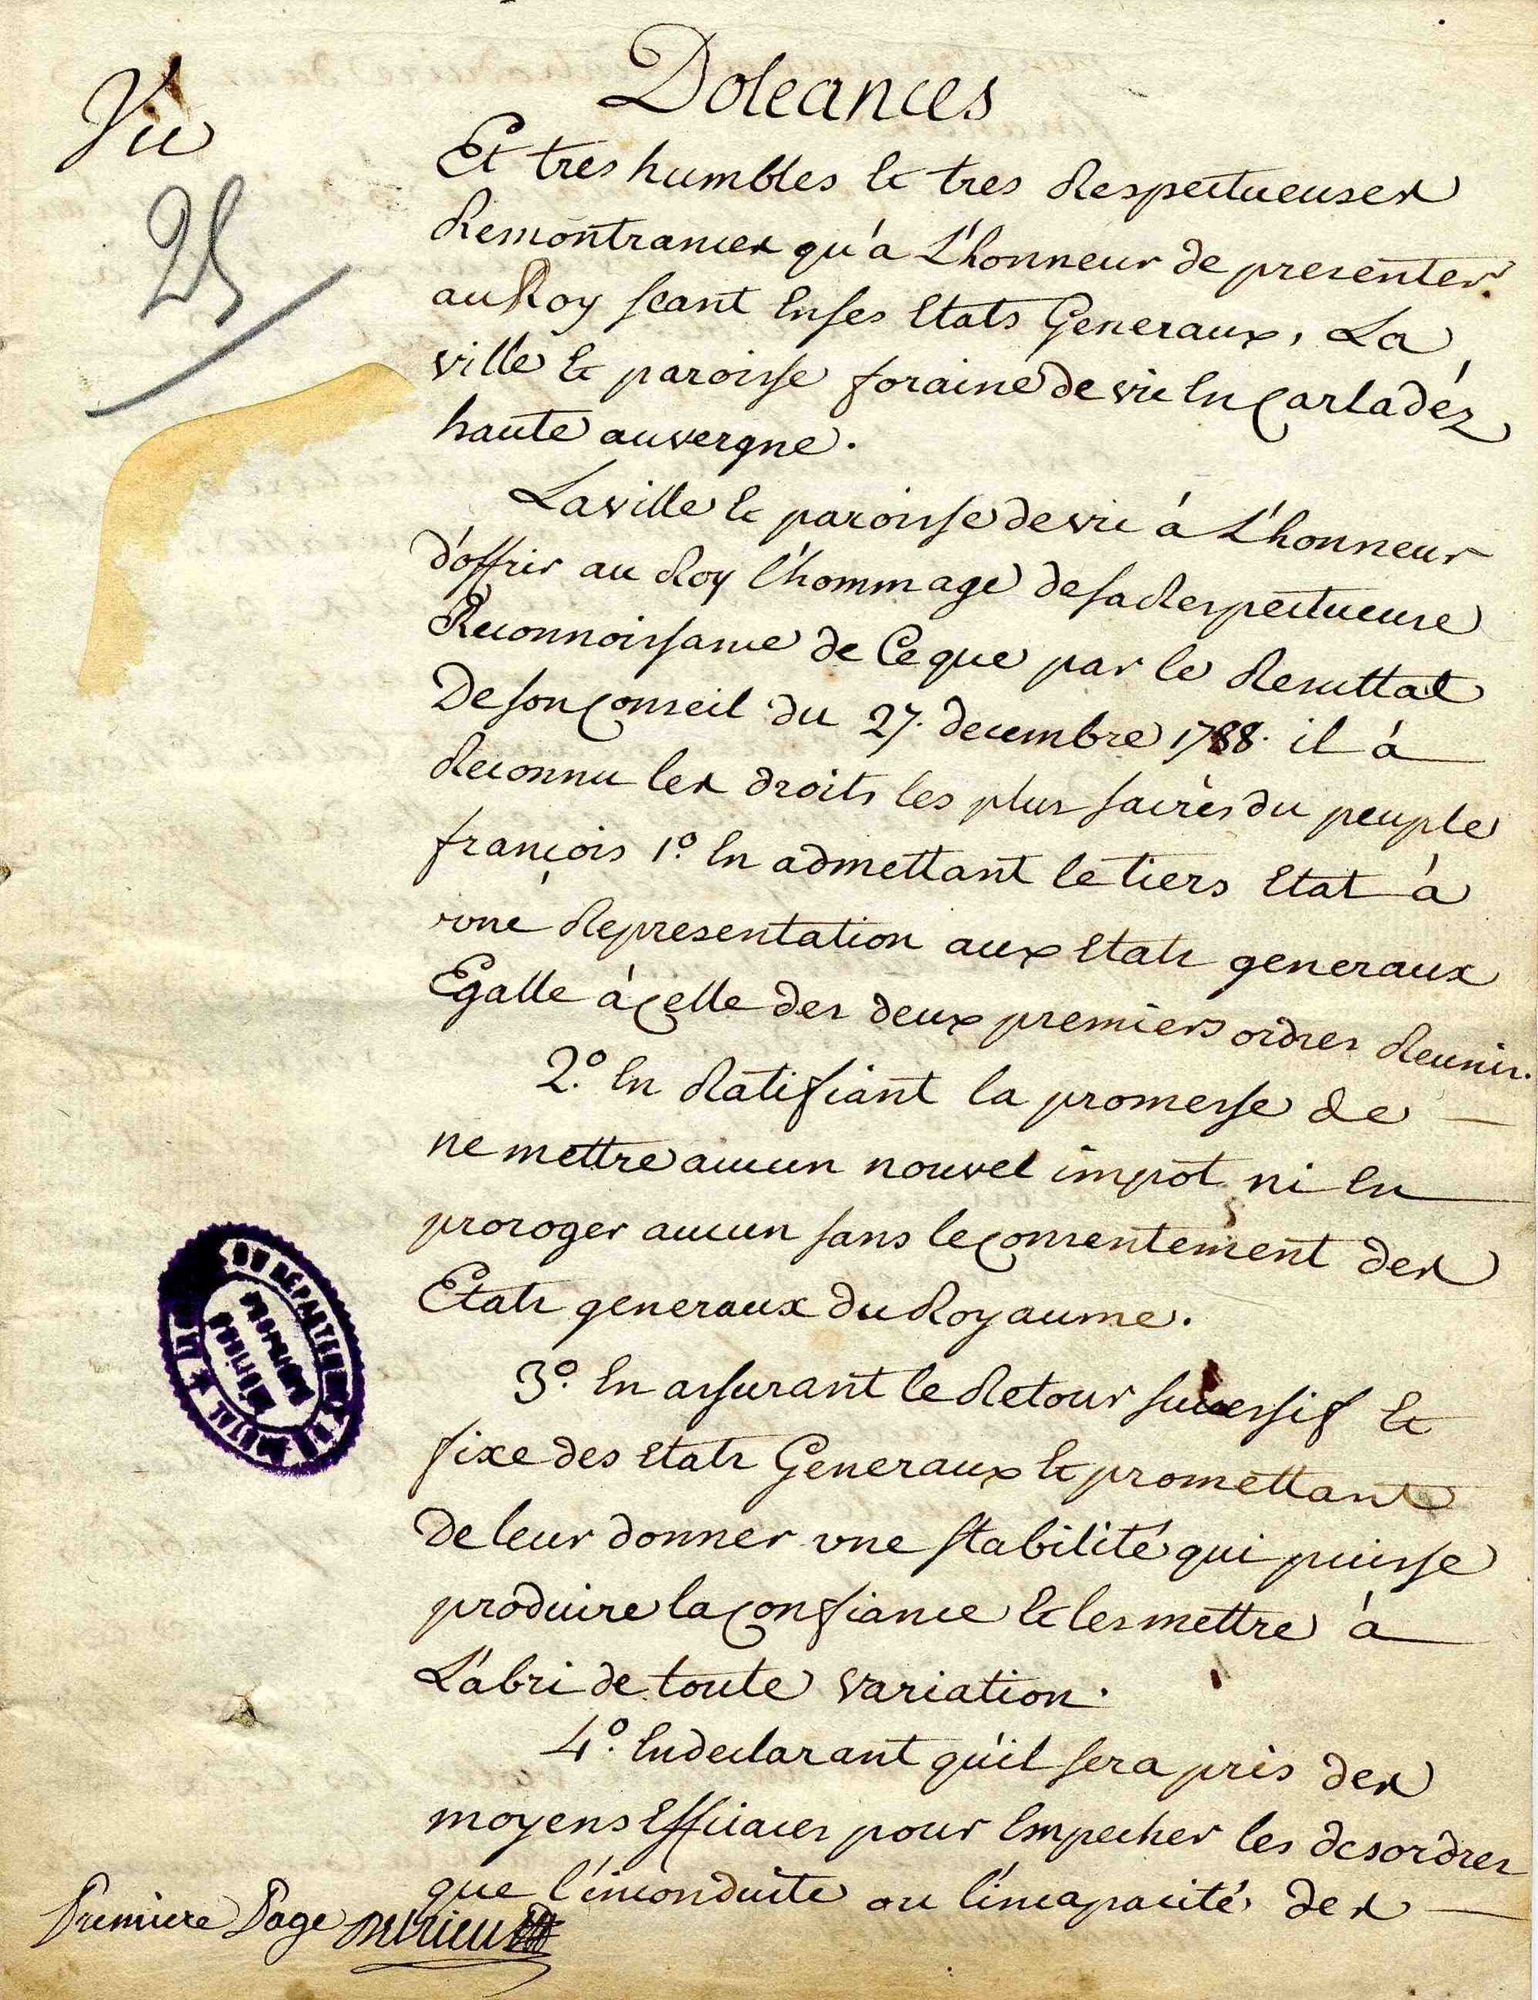 Doleances
Vic
25
Et tres humbles et tres Respectueuses
Remontrances qu'à L'honneur de presenter
au Roy seant en ses Etats Generaux, La
ville et paroisse foraine de vic en Carladéz
haute auvergne.
La ville et paroisse de vic à L'honneur
d'offrir au Roy l'hommage de sa Respectueuse
Reconnoissance de Ce que par le Resultat
De son Conseil du 27. decembre 1788. il à
Reconnu les droits les plus sacrés du peuple
françois 1.º en admettant le tiers Etat à
une Representation aux Etats generaux
Egalle à Celle des deux premiers ordres Reunis.
2.º en Ratifiant la promesse de
ne mettre aucun nouvel impot ni en
proroger aucun sans le Consentement des
Etats generaux du Royaume.
3.º en assurant le Retour successif et
fixe des Etats Generaux et promettant
De leur donner une stabilité qui puisse
produire la Confiance et les mettre à
L'abri de toute variation.
4.º en declarant qu'il sera pris des
moyens Efficaces pour Empecher les desordres
que l'inconduite ou l'incapacité des
Premiere Page
DU DÉPARTEMENT DU CANTAL